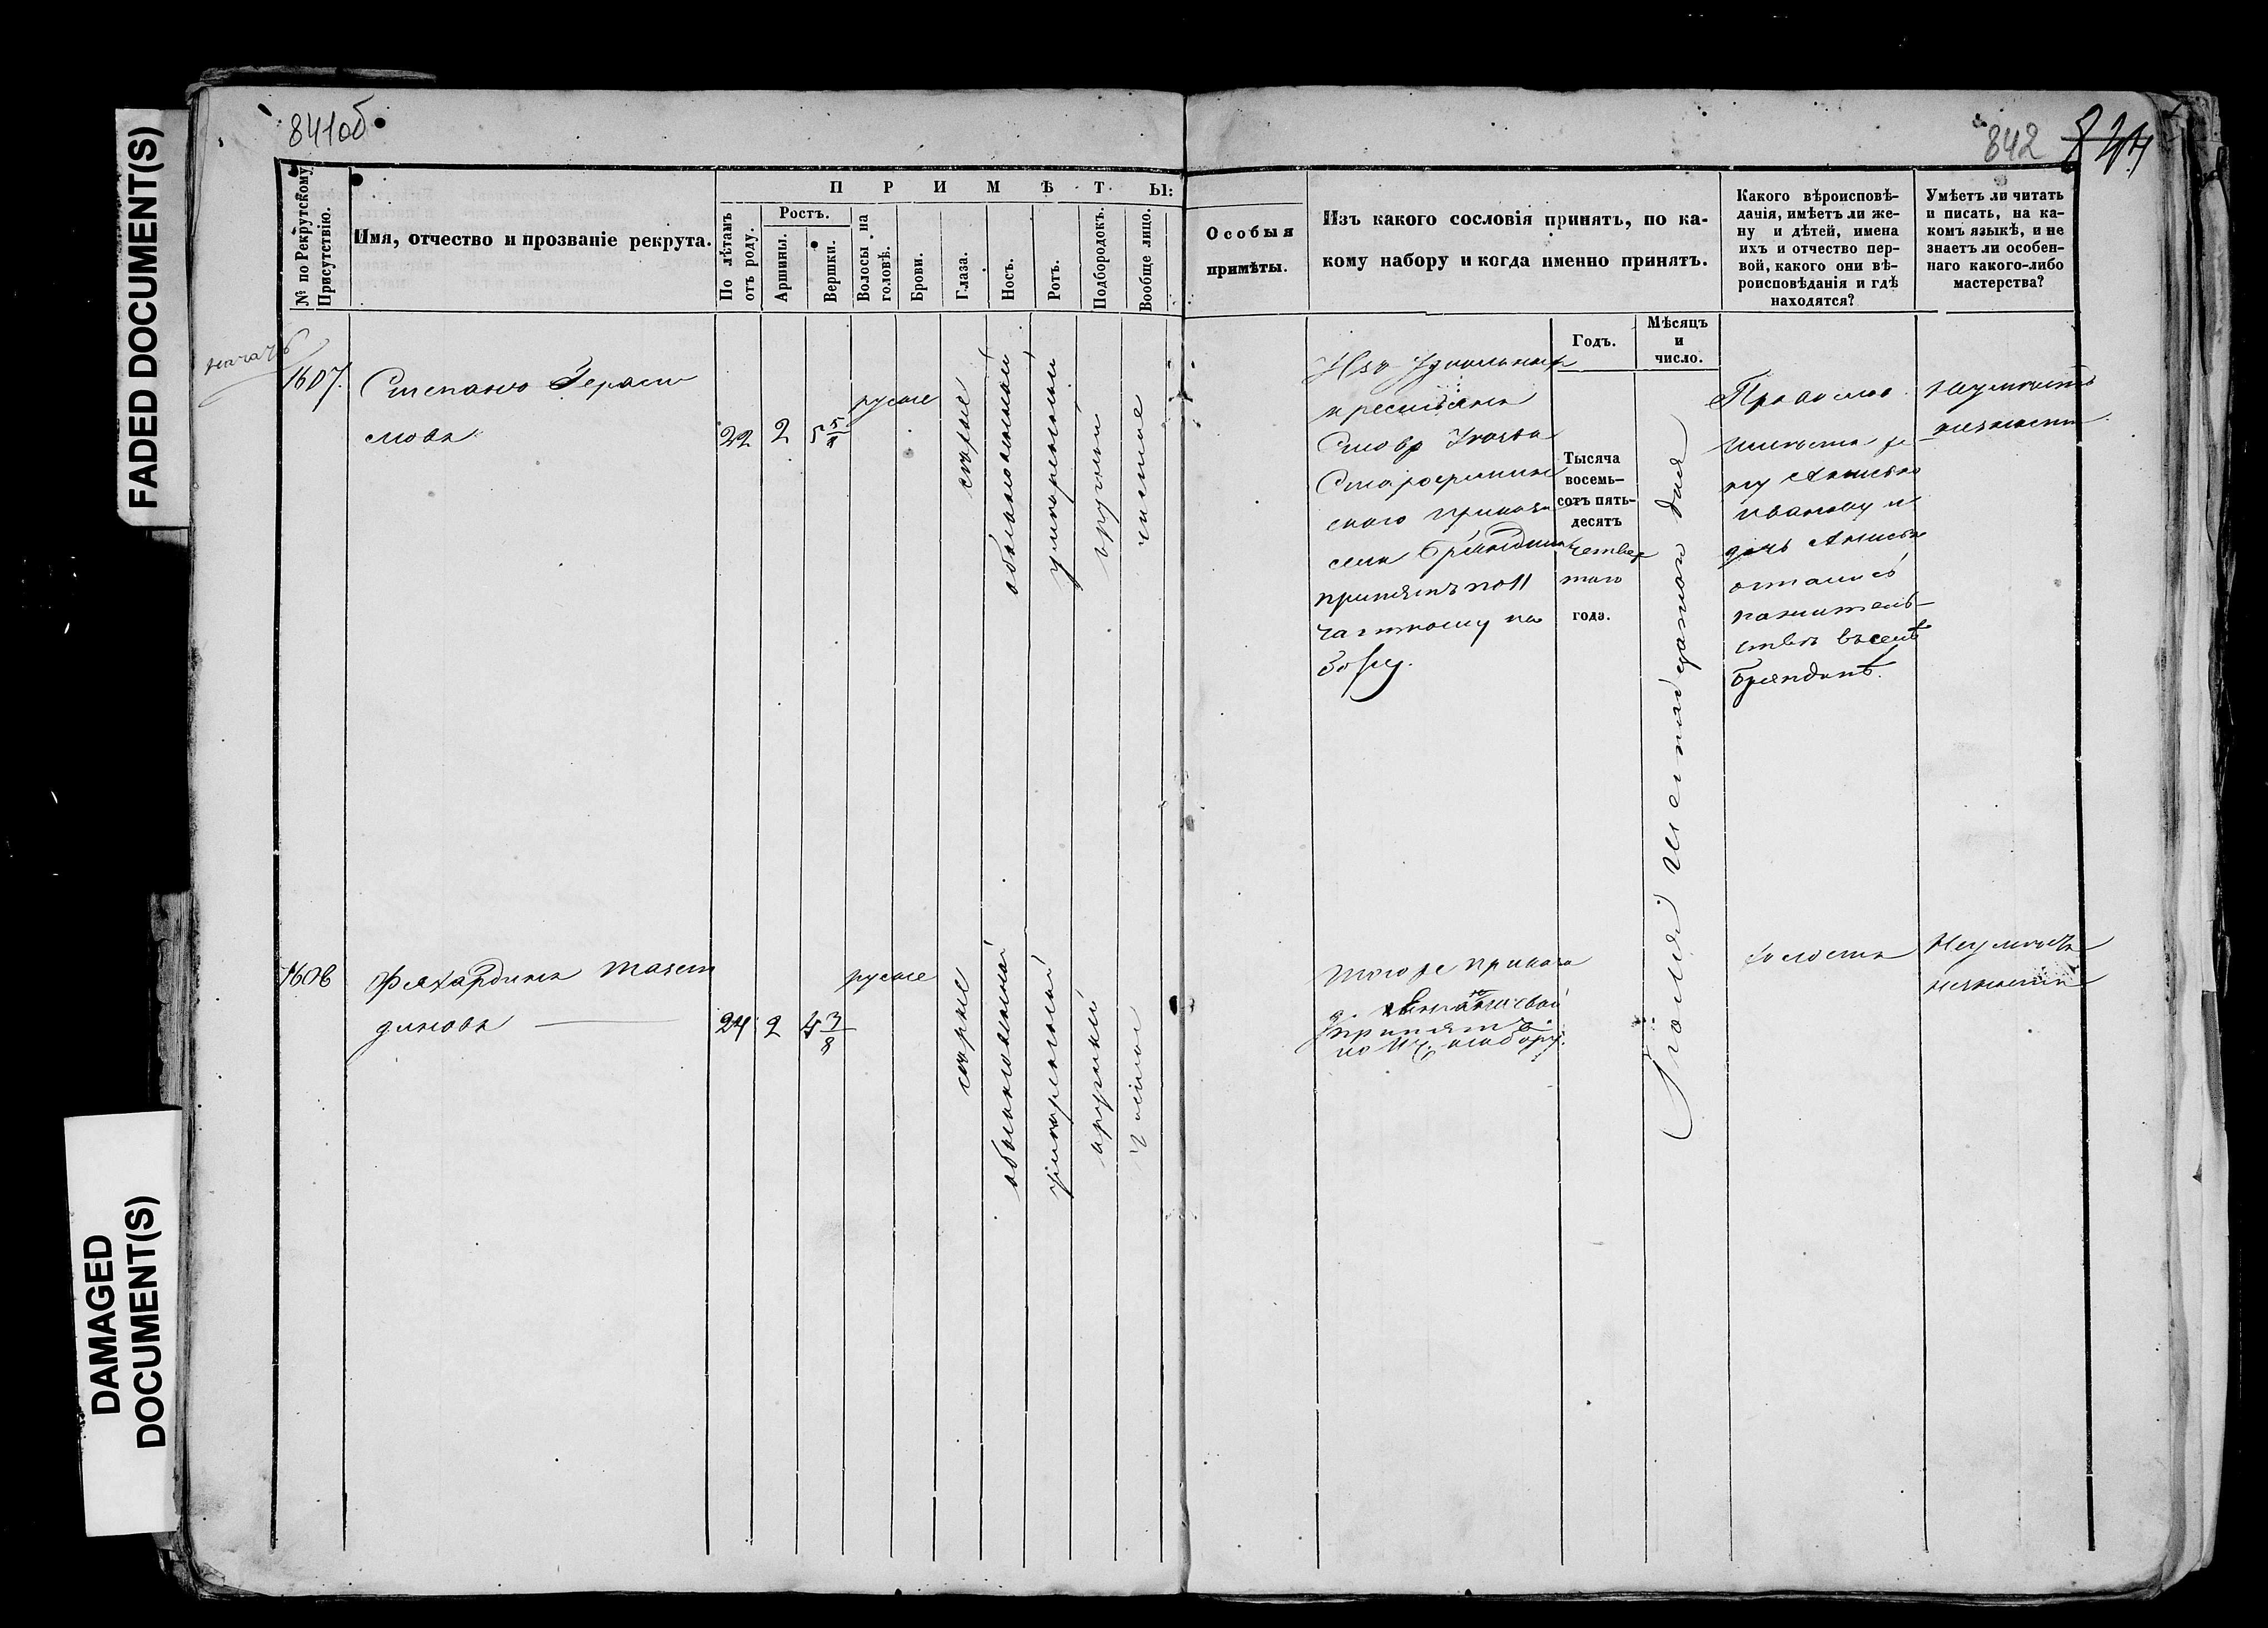 FADED DOCUMENT(S)
DAMAGED
DOCUMENT(S)
841об
842
№ по Рекрутскому
Присутствію.
Имя, отчество и прозваніе рекрута.
ПРИМѢТЫ:
По лѣтамъ
отъ роду.
Ростъ.
Аршины.
Вершки.
Волосы на
головѣ.
Брови.
Глаза.
Носъ.
Ротъ.
Подбородокъ.
Вообще лицо.
Особыя
примѣты.
Изъ какого сословія принятъ, по ка-
кому набору и когда именно принятъ.
Годъ.
Мѣсяцъ
и
число.
Какого вѣроисповѣ-
данія, имѣетъ ли же-
ну и дѣтей, имена
ихъ и отчество пер-
вой, какого они вѣ-
роисповѣданія и гдѣ
находятся?
Умѣетъ ли читать
и писать, на ка-
комъ языкѣ, и не
знаетъ ли особен-
наго какого-либо
мастерства?
1607.
Степанъ Гераси
мовъ
22
2
5 5/8
русые
сѣрые
обыкновенный
умѣренный
круглый
чистое
Изъ Удѣльныхъ
крестьянъ
скаго приказа
села
принятъ по 11
частному на
бору.
Тысяча
восемь-
сотъ пять-
десятъ
четвер
таго
года.
дня
Православ
ну Анисью
Иванову и
дочь Анисью
остались
на жительст
вѣ въ селѣ
неумѣетъ
незнаетъ
1608
тазет
диновъ
24
2
4 3/8
русые
сѣрые
обыкновенный
умѣренный
круглый
чистое
того же приказа
д.
принятъ
по 11 ч. набору.
холостъ
Неумѣетъ
незнаетъ